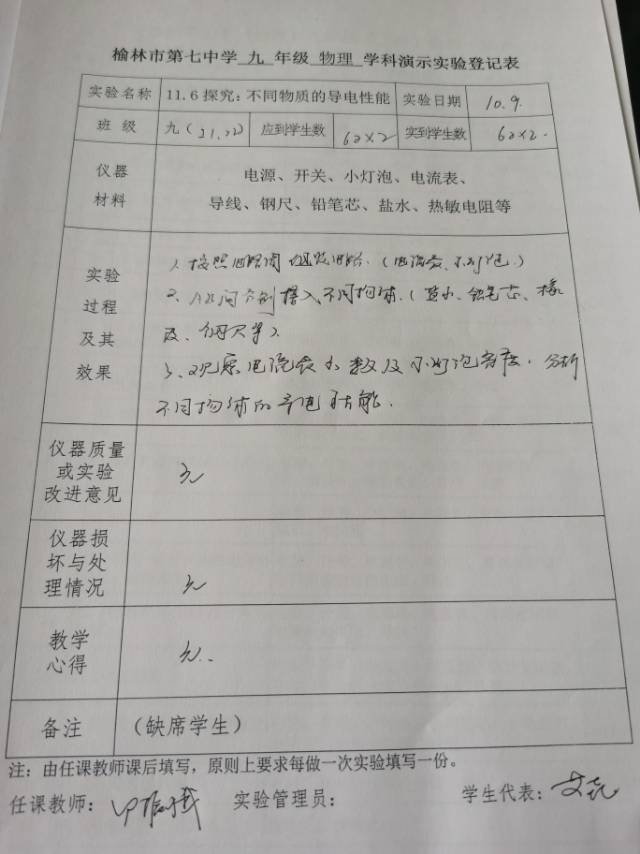 榆林市第七中学 九 年级 物理 学科演示实验登记表
实验名称 11.6探究：不同物质的导电性能 实验日期 10.9.
班 级 九（21.22） 应到学生数 62×2 实到学生数 62×2.
仪器
材料
电源、开关、小灯泡、电流表、
导线、钢尺、铅笔芯、盐水、热敏电阻等
实验
过程
及其
效果
1. 按照电路图 电路.（电流表、小灯泡.）
2. AB间分别接入不同物体.（盐水、铅笔芯、橡
皮、钢尺等).
3. 观察电流表示数及小灯泡亮度. 分析
不同物体的导电性能.
仪器质量
或实验
改进意见
无
仪器损
坏与处
理情况
无
教学
心得
无.
备注 （缺席学生）
注：由任课教师课后填写，原则上要求每做一次实验填写一份。
任课教师： 实验管理员： 学生代表：